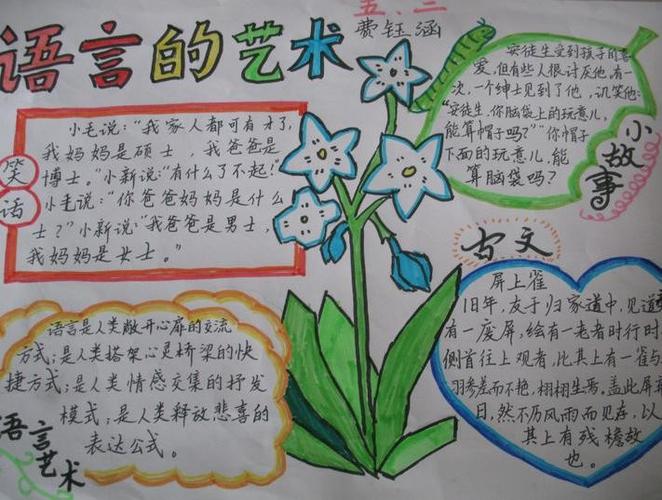 五、二
费钰涵
语言的艺术
笑话
小毛说:“我家人都可有才了,
我妈妈是硕士,我爸爸是
博士。”小新说:“有什么了不起!”
小毛说:“你爸爸妈妈是什么
士?”小新说“我爸爸是男士,
我妈妈是女士。”
安徒生受到孩子的喜
爱,但有些人很讨灰他,有一
次,一个绅士见到了他,讥笑他:
“安徒生,你脑袋上的玩意儿,
能算帽子吗?”“你帽子
下面的玩意儿,能
算脑袋吗?
小故事
古文
屏上雀
旧年,友于归家道中,见道旁
有一废屏,绘有一老者时行时
侧首往上观者,比其上有一雀与
羽参差而不艳,栩栩生焉,盖此屏
日,然不历风雨而见存,以
其上有残檐故
也。
语言是人类敞开心扉的交流
方式;是人类搭架心灵桥梁的快
捷方式;是人类情感交集的抒发
模式;是人类释放悲喜的
表达公式。
语言艺术